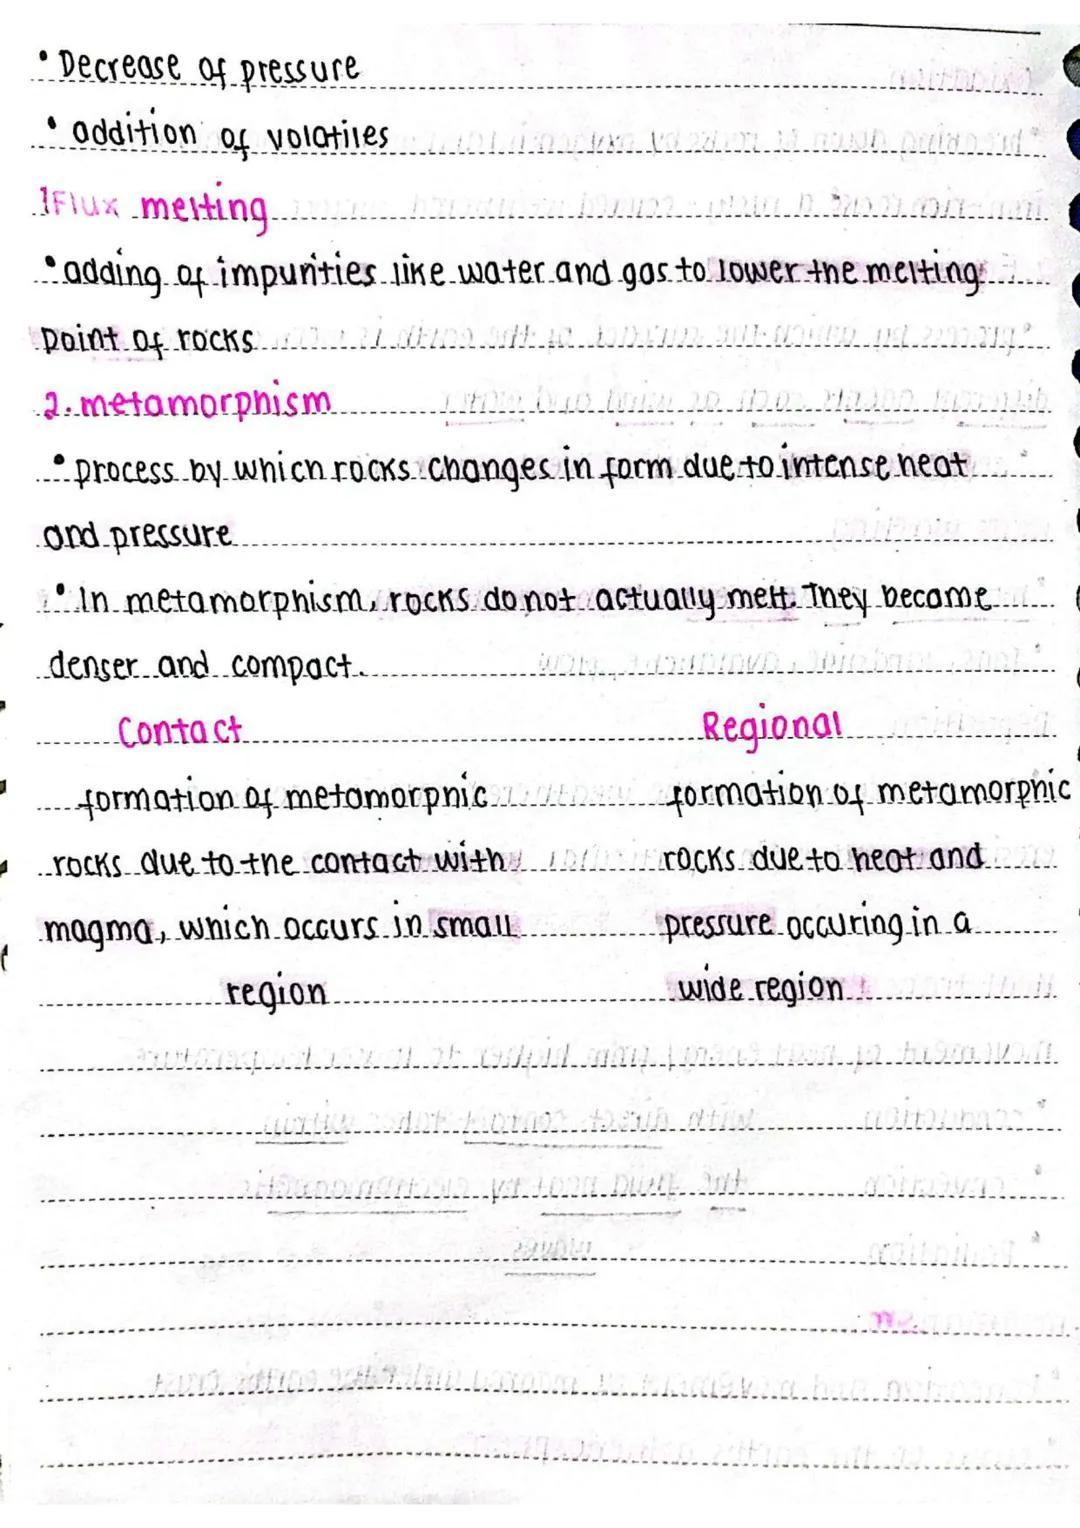 • Decrease of pressure
• addition of volatiles
1 Flux melting
• adding of impurities like water and gas to lower the melting
point of rocks
2. metamorphism
• process by which rocks changes in form due to intense heat
and pressure
• In metamorphism, rocks do not actually melt. They become
denser and compact.
Contact Regional
formation of metamorphic formation of metamorphic
rocks due to the contact with rocks due to heat and
magma, which occurs in small pressure occuring in a
region wide region